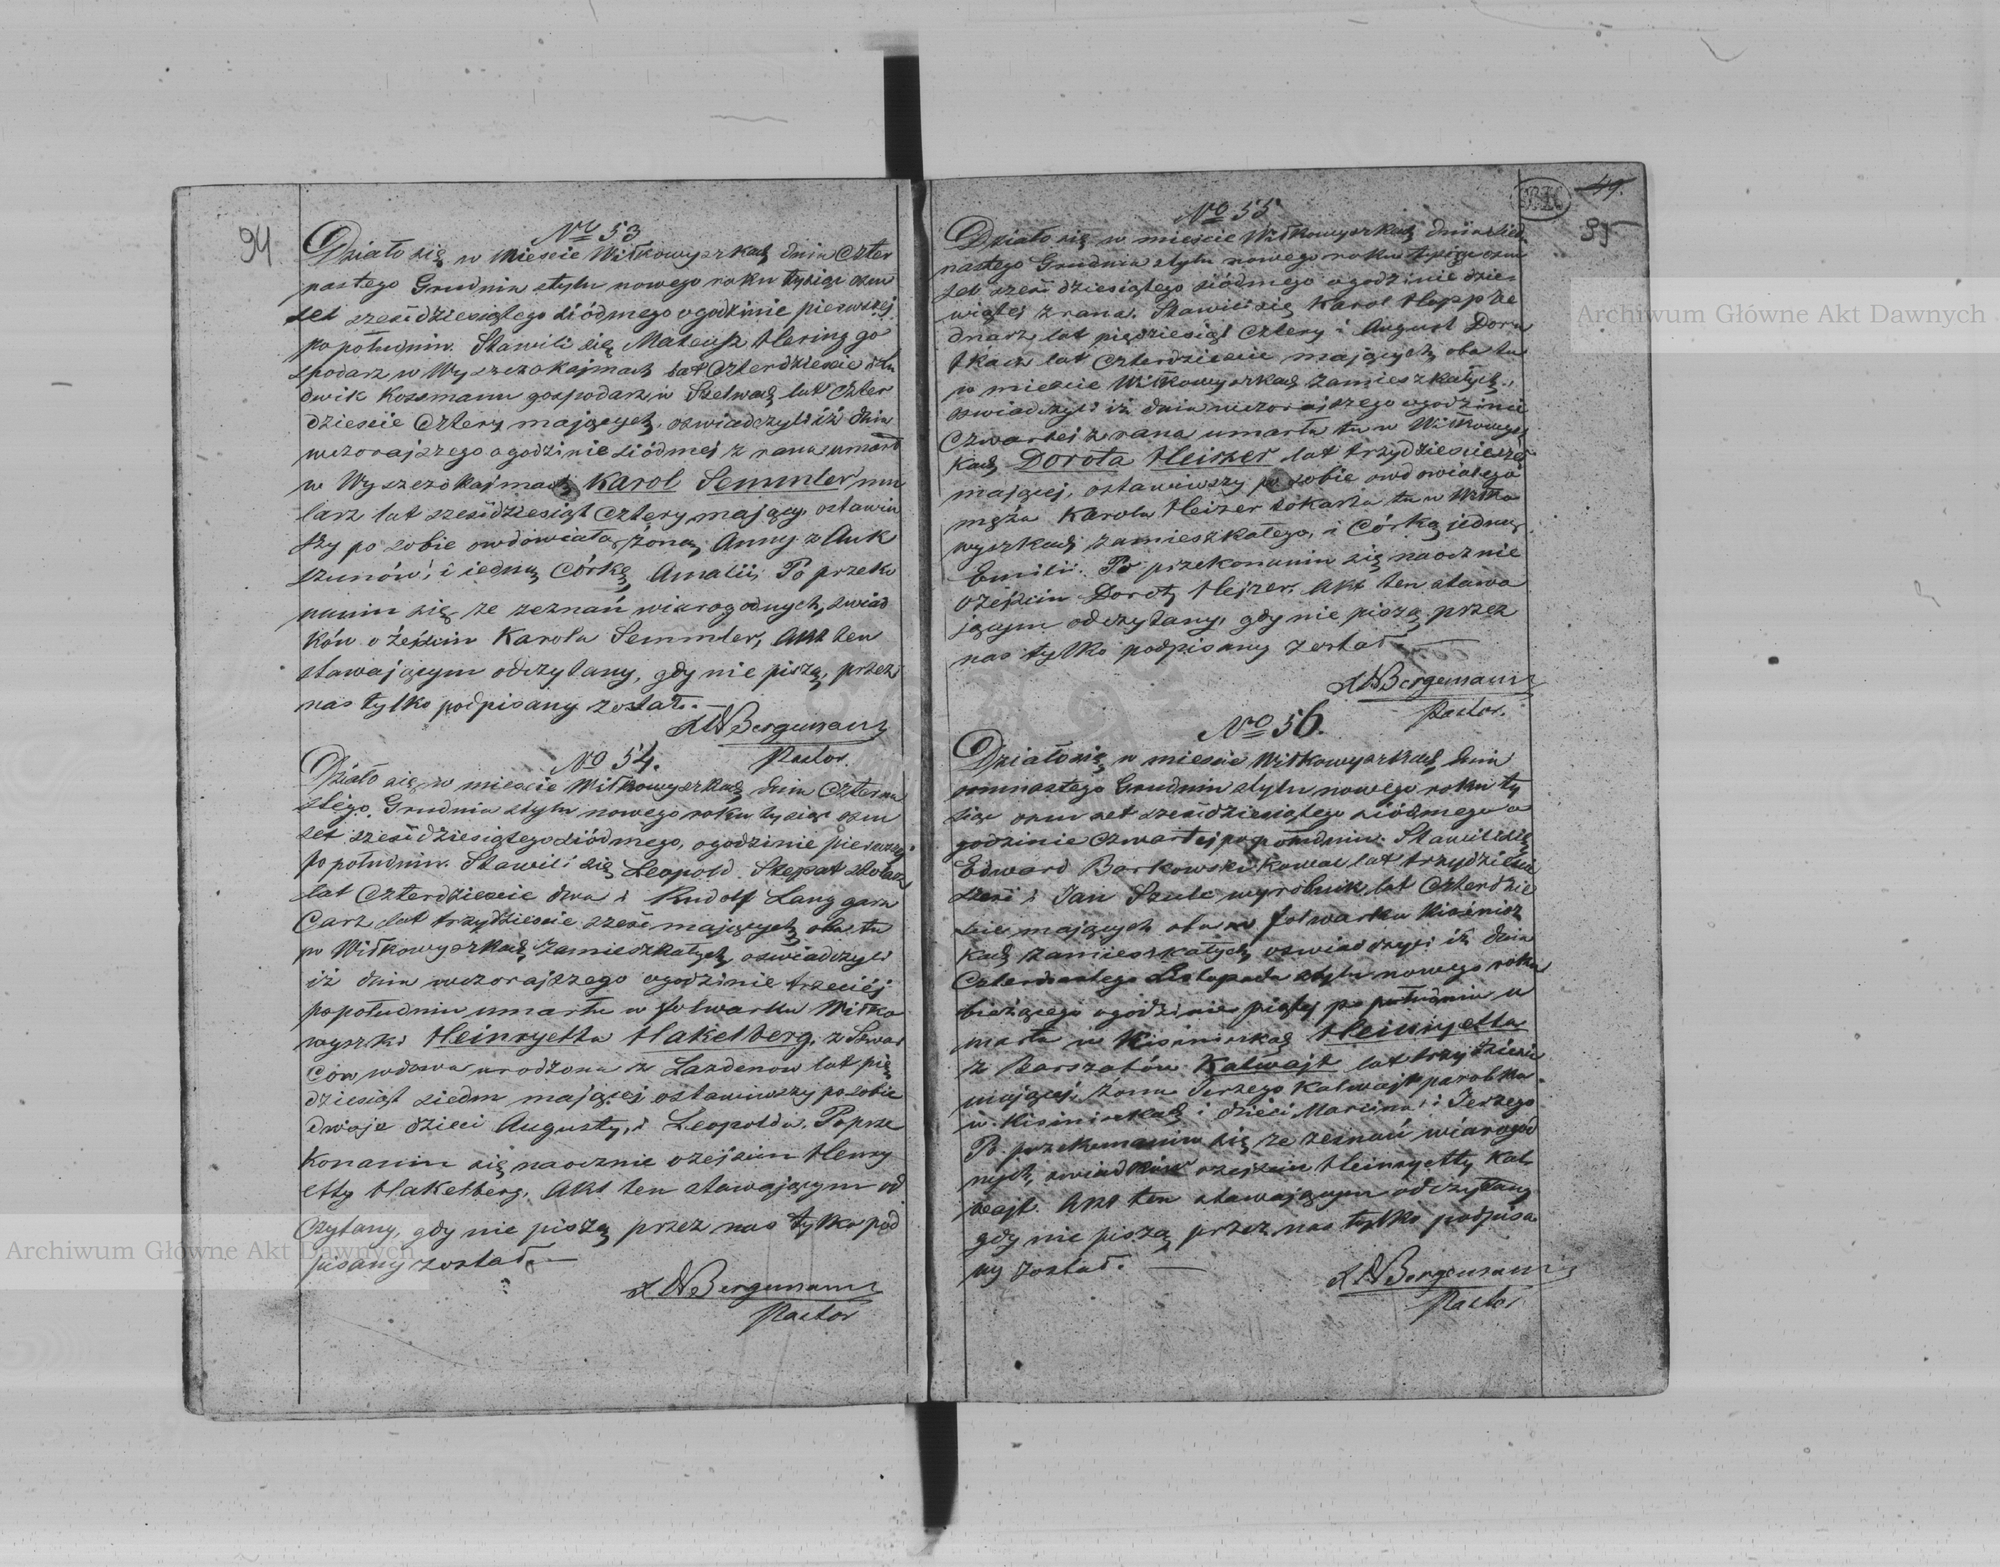 94
No 53
Działo się w Mieście Wiłkowyszkach dnia Czter
nastego Grudnia stylu nowego roku tysiąc osm
set sześćdziesiątego siódmego o godzinie pierwszej
po południu. Stawili się Mateusz Hering go
spodarz w Wyszczokajmach lat Czterdzieście i Lu
dwik Kossmann gospodarz w Szelwach lat Czter
dzieście Cztery mających, oświadczyli iż dnia
wczorajszego o godzinie siódmej z rana umarł
w Wyszczokajmach Karol Semmler mu
larz lat sześćdziesiąt Cztery mający, ostawiw
szy po sobie owdowiałą żonę Annę z Auk
szunów, i jedną Córkę Amalii, Po przeko
naniu się ze zeznań wiarogodnych świad
ków o zejściu Karola Semmler, Akt ten
stawającym odczytany, gdy nie piszą, przez
nas tylko podpisany został.
Bergemann
Pastor.
No 54.
Działo się w mieście Wiłkowyszkach dnia Czterna
stego Grudnia stylu nowego roku tysiąc osm
set sześćdziesiątego siódmego, o godzinie pierwszej
po południu. Stawili się Leopold Skepat stolarz
lat Czterdzieście dwa i Rudolf Lang garn
Carz lat trzydzieście sześć mających oba tu
w Wiłkowyszkach zamieszkałych, oświadczyli
iż dnia wczorajszego o godzinie trzeciej
po południu umarła w folwarku Wiłko
wyszki Heinryetta Hakelberg, z Szwar
Ców wdowa urodzona z Lazdenow lat pię
dziesiąt siedm mającej ostawiwszy po sobie
dwoje dzieci Augusty, i Leopolda. Po prze
konaniu się naocznie o zejściu Henry
etty Hakelberg, Akt ten stawającym od
Czytany, gdy nie piszą przez nas tylko pod
pisany został.
Bergemann
Pastor
49.
95
No 55
Działo się w mieście Wiłkowyszkach dnia
nastego Grudnia stylu nowego roku tysiąc osm
set sześćdziesiątego siódmego o godzinie dzie
wiątej z rana. Stawili się Karol Hopp be
dnarz lat pięćdziesiąt Cztery i August Dorn
tkacz lat Czterdzieście mających oba tu
w mieście Wiłkowyszkach zamieszkałych,
oświadczyli iż dnia wczorajszego o godzinie
Czwartej z rana umarła tu w Wiłkowysz
kach Dorota Heiszer lat trzydzieście sześć
mającej, ostawiwszy po sobie owdowiałego
męża Karola Heizer tokarza tu w Wiłko
wyszkach zamieszkałego, i Córkę jedną
Emilii. Po przekonaniu się naocznie
o zejściu Doroty Hejzer, Akt ten stawa
jącym odczytany, gdy nie piszą przez
nas tylko podpisany został.
Bergemann
Pastor.
No 56.
Działo się w mieście Wiłkowyszkach dnia
osmnastego Grudnia stylu nowego roku ty
siąc osm set sześćdziesiątego siódmego o
godzinie Czwartej po południu. Stawili się
Edward Borkowski kowal lat trzydzieście
sześć i Jan Szulc wyrobnik lat Czterdzie
ście mających oba w folwarku Kisinisz
kach zamieszkałych, oświadczyli iż dnia
Czternastego Listopada stylu nowego roku
bieżącego o godzinie piątej po południu u
marła w Kisiniszkach Heinryetta
z Barszatów Katwajt lat trzydzieście
mającej żona Jerzego Katwajt parobka
w Kisiniszkach i dzieci Marcina i Jerzego
Po przekonaniu się ze zeznań wiarogod
nych świadków o zejściu Heinryetty Kat
wajt. Akt ten stawającym odczytany
gdy nie piszą przez nas tylko podpisa
ny został.
Bergemann
Pastor
Archiwum Główne Akt Dawnych
Archiwum Główne Akt Dawnych